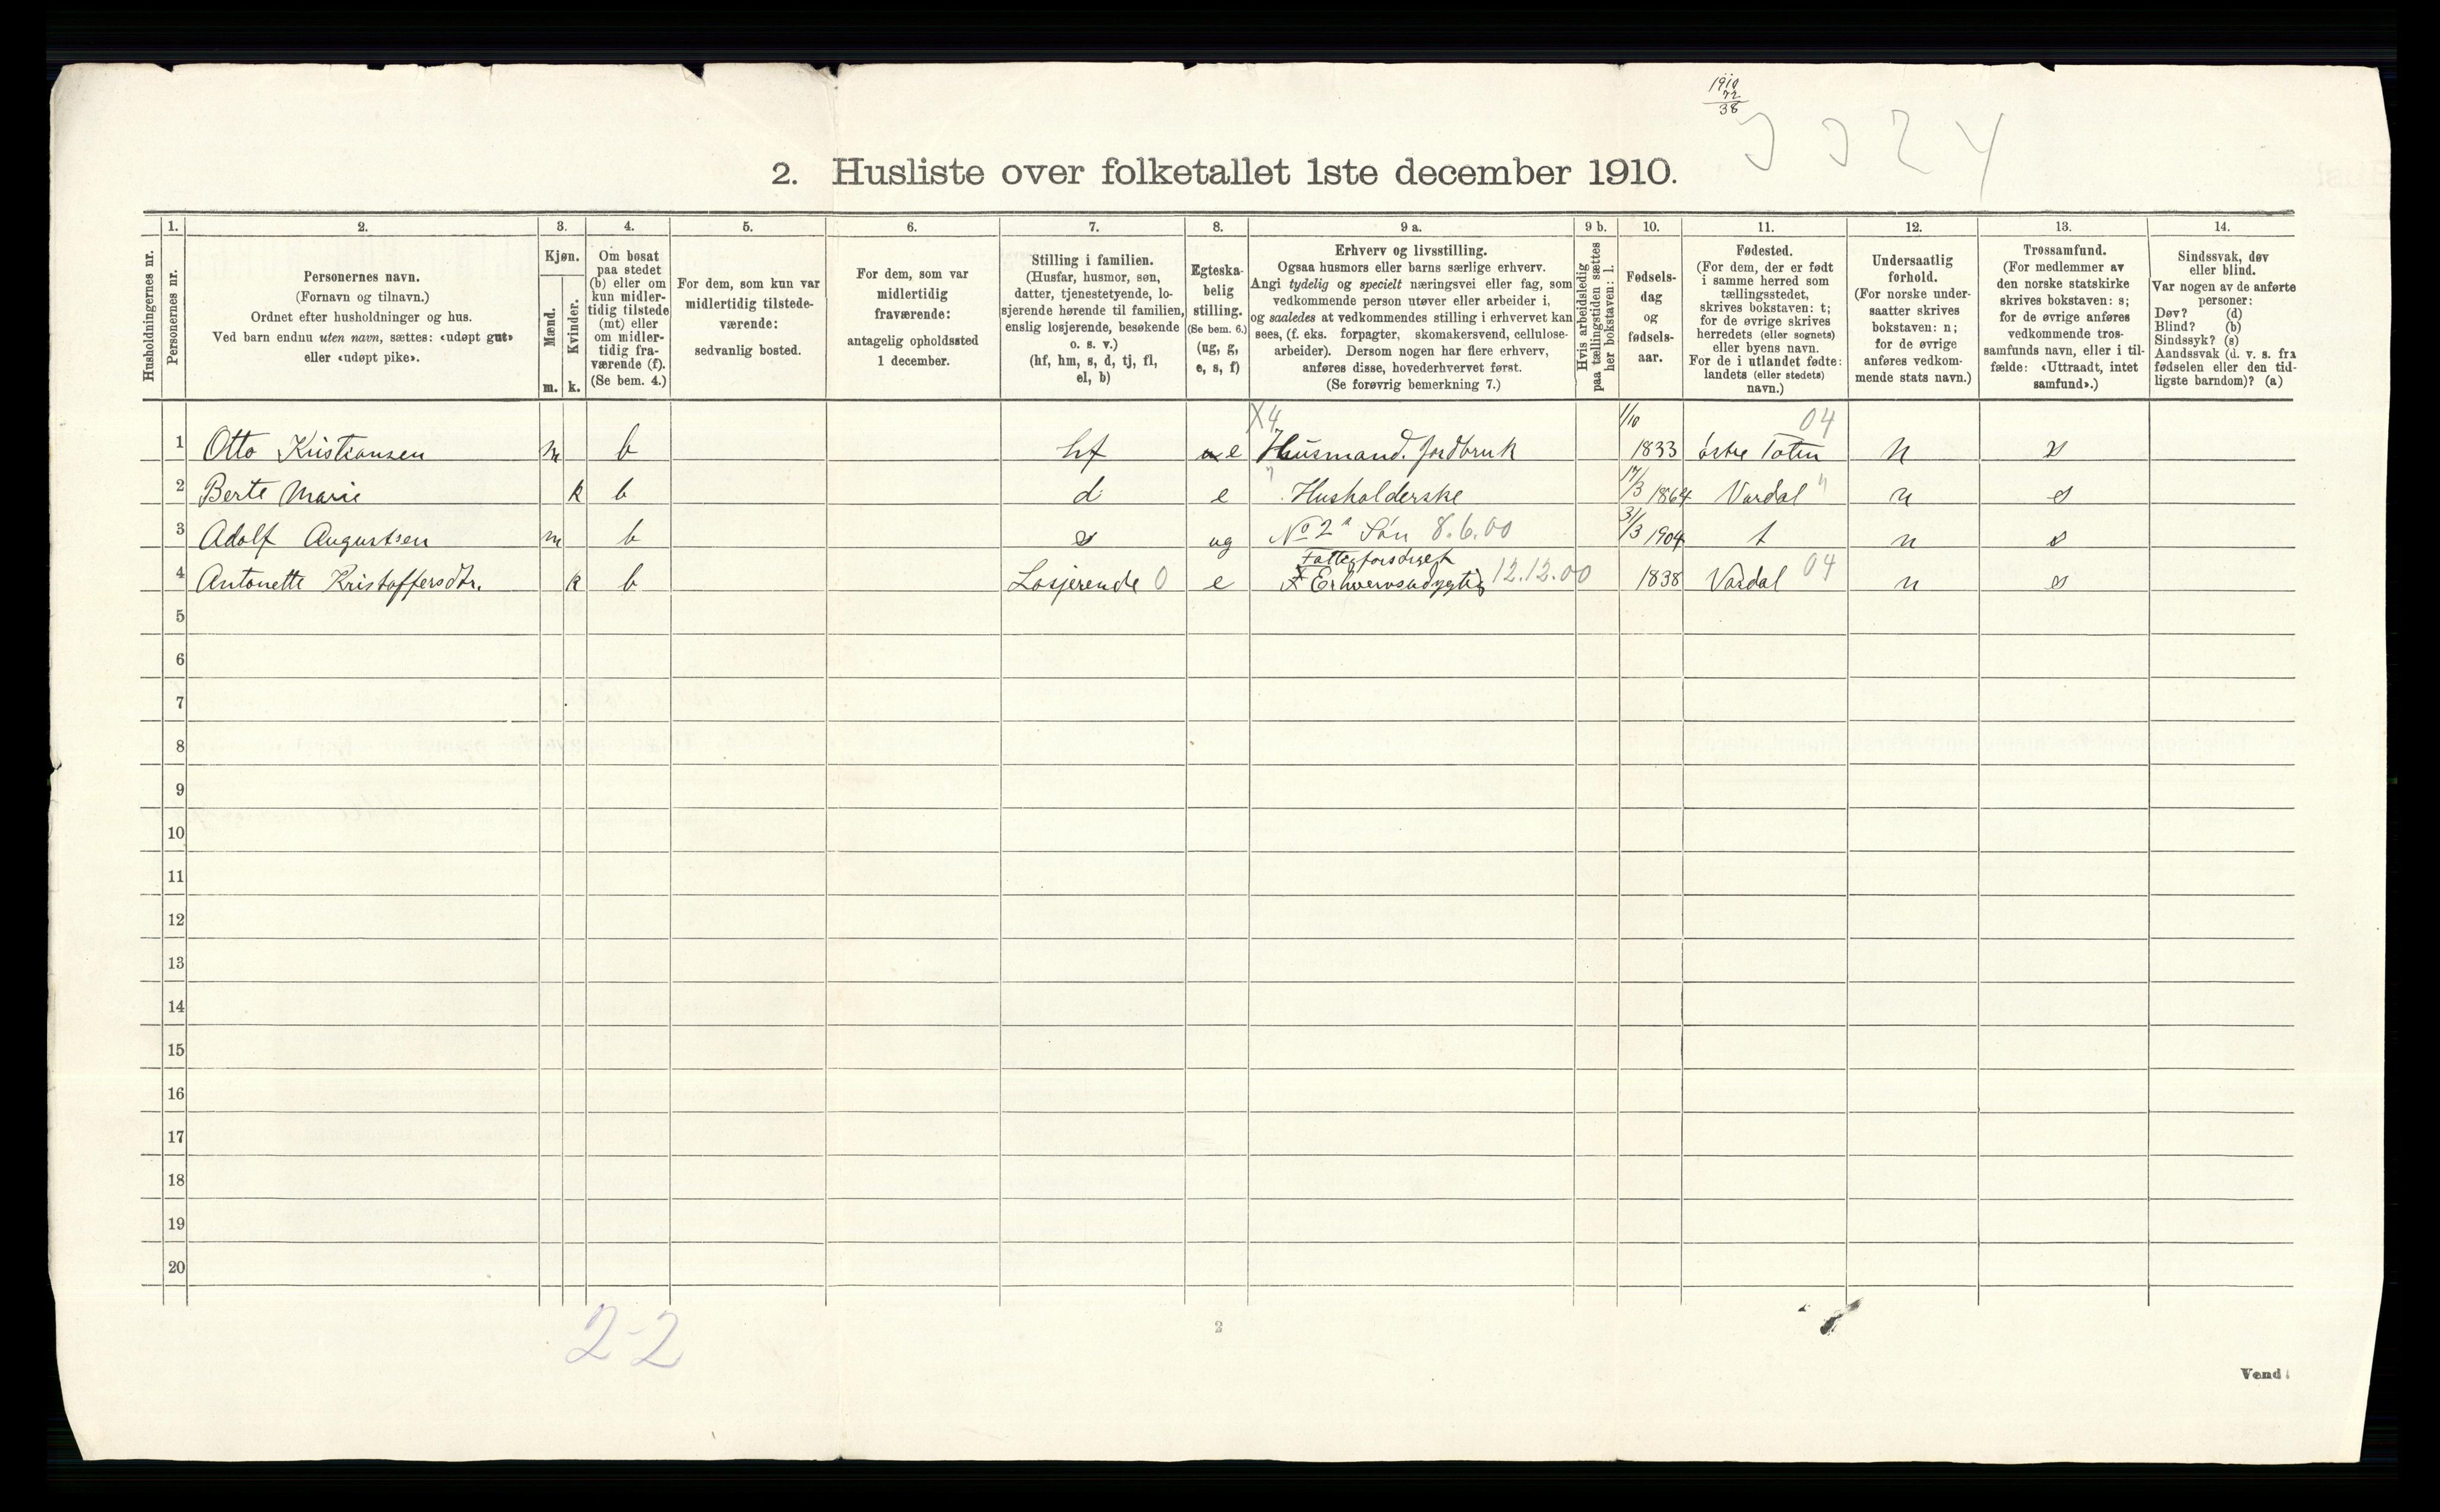 1910
72
38
2. Husliste over folketallet 1ste december 1910.
Husholdningernes nr.
1.
Personernes nr.
2.
Personernes navn.
(Fornavn og tilnavn.)
Ordnet efter husholdninger og hus.
Ved barn endnu uten navn, sættes: «udøpt gut»
eller «udøpt pike».
3.
Kjøn.
Mænd.
m.
Kvinder.
k.
4.
Om bosat
paa stedet
(b) eller om
kun midler-
tidig tilstede
(mt) eller
om midler-
tidig fra-
værende (f).
(Se bem. 4.)
5.
For dem, som kun var
midlertidig tilstede-
værende:
sedvanlig bosted.
6.
For dem, som var
midlertidig
fraværende:
antagelig opholdssted
1 december.
7.
Stilling i familien.
(Husfar, husmor, søn,
datter, tjenestetyende, lo-
sjerende hørende til familien,
enslig losjerende, besøkende
o. s. v.)
(hf, hm, s, d, tj, fl,
el, b)
8.
Egteska-
belig
stilling.
(Se bem. 6.)
(ug, g,
e, s, f)
9 a.
Erhverv og livsstilling.
Ogsaa husmors eller barns særlige erhverv.
Angi tydelig og specielt næringsvei eller fag, som
vedkommende person utøver eller arbeider i,
og saaledes at vedkommendes stilling i erhvervet kan
sees, (f. eks. forpagter, skomakersvend, cellulose-
arbeider). Dersom nogen har flere erhverv,
anføres disse, hovederhvervet først.
(Se forøvrig bemerkning 7.)
9 b.
Hvis arbeidsledig
paa tællingstiden sættes
her bokstaven: l.
10.
Fødsels-
dag
og
fødsels-
aar.
11.
Fødested.
(For dem, der er født
i samme herred som
tællingsstedet,
skrives bokstaven: t;
for de øvrige skrives
herredets (eller sognets)
eller byens navn.
For de i utlandet fødte:
landets (eller stedets)
navn.)
12.
Undersaatlig
forhold.
(For norske under-
saatter skrives
bokstaven: n;
for de øvrige
anføres vedkom-
mende stats navn.)
13.
Trossamfund.
(For medlemmer av
den norske statskirke
skrives bokstaven: s;
for de øvrige anføres
vedkommende tros-
samfunds navn, eller i til-
fælde: «Uttraadt, intet
samfund».)
14.
Sindssvak, døv
eller blind.
Var nogen av de anførte
personer:
Døv? (d)
Blind? (b)
Sindssyk? (s)
Aandssvak (d. v. s. fra
fødselen eller den tid-
ligste barndom)? (a)
X4 1/10 04
1 Otto Kristiansen m b hf e Husmand. Jordbruk 1833 østre Toten n s
2 Berte Marie k b d e " Husholderske 17/3 1864 Vardal " n s
3 Adolf Augustsen m b s ug No 2s Søn 8.6.00 31/3 1904 t n s
Fattigforsørget
4 Antonette Kristoffersdtr. k b Losjerende 0 e X Erhvervsudygtig 12.12.00 1838 Vardal 04 n s
5
6
7
8
9
10
11
12
13
14
15
16
17
18
19
20
2-2
2
Vend!